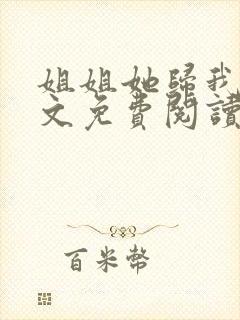 姐姐她歸我
文免費閱讀
百米幣